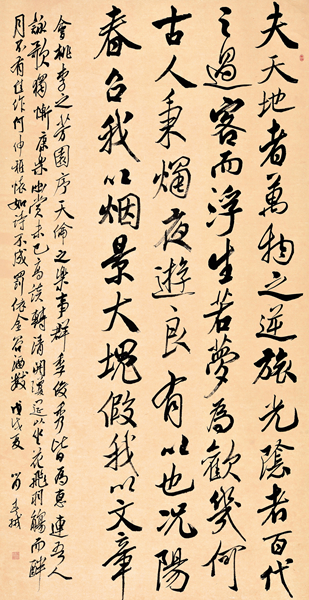 夫天地者萬物之逆旅光陰者百代
之過客而浮生若夢為歡幾何
古人秉燭夜遊良有以也況陽
春召我以烟景大塊假我以文章
會桃李之芳園序天倫之樂事群季俊秀皆為惠連吾人
詠歌獨慚康樂幽賞未已高談轉清開瓊筵以坐花飛羽觴而醉
月不有佳作何伸雅懷如詩不成罰依金谷酒數 戊戌夏